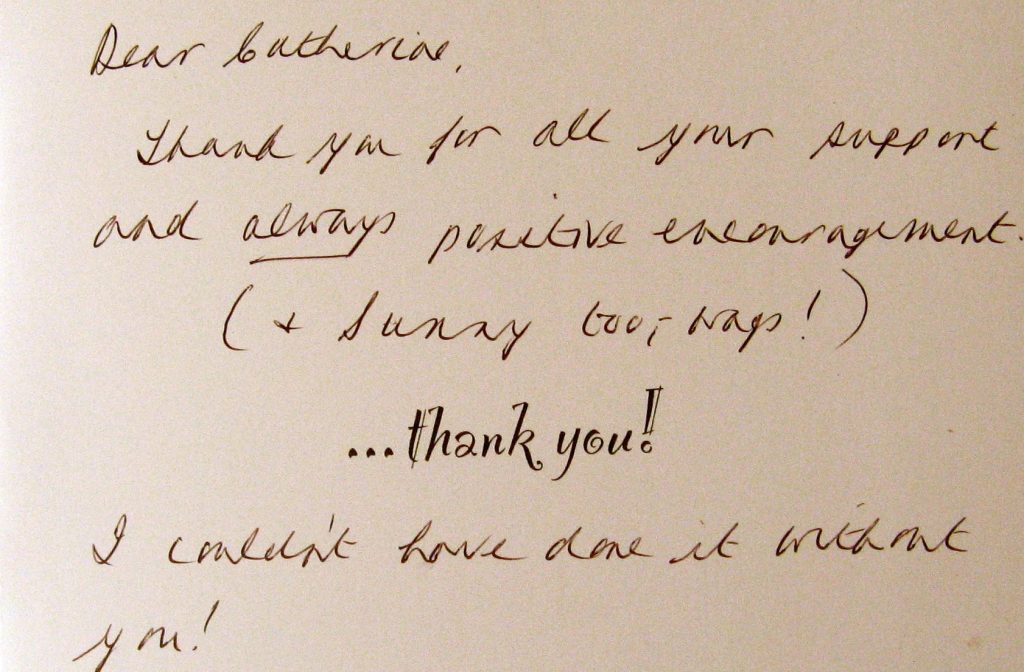 Dear Catherine,
Thank you for all your support
and always positive encouragement.
(+ Sunny too, wags!)
...thank you!
I couldn't have done it without
you!